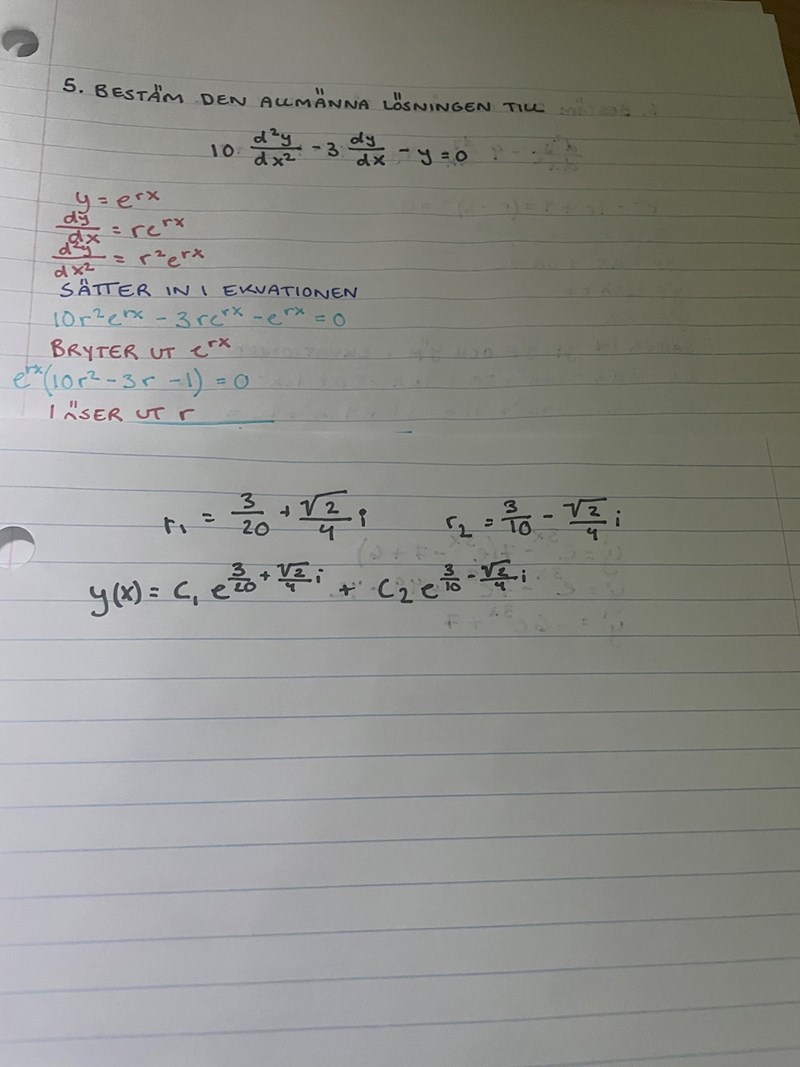 5. BESTÄM DEN ALLMÄNNA LÖSNINGEN TILL
10 d²y/dx² - 3 dy/dx - y = 0
y = e^rx
dy/dx = re^rx
d²y/dx² = r²e^rx
SÄTTER IN I EKVATIONEN
10r²e^rx - 3re^rx - e^rx = 0
BRYTER UT e^rx
e^rx(10r² - 3r - 1) = 0
LÖSER UT r
r₁ = 3/20 + √2/4 i r₂ = 3/10 - √2/4 i
y(x) = C₁ e^(3/20 + √2/4 i) + C₂ e^(3/10 - √2/4 i)